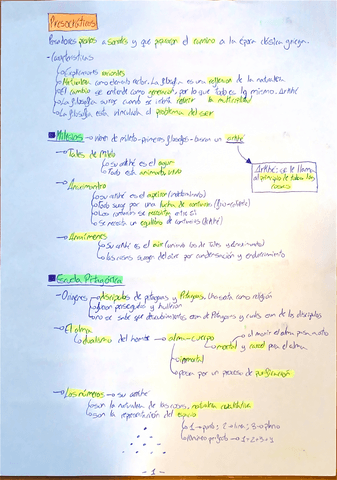 Presocráticos
Pensadores previos a Sócrates y que preparan el camino a la época clásica griega.
-Características
Explicaciones
Naturaleza como elemento rector. La filosofía es una reflexión de la naturaleza
El cambio se entiende como generación, por lo que todo es lo mismo. Arkhé
La filosofía surge cuando se intenta reducir la multiplicidad
La filosofía está vinculada al problema del ser
Milesios → vienen de mileto - primeros filósofos - buscan un arkhé
Tales de Mileto
Su arkhé es el agua
Todo está animado/vivo
Arkhé: se le llama
al principio de todas las
cosas
Anaximandro
Su arkhé es el apeiron (indeterminado)
Todo surge por una lucha de contrarios (frío-caliente)
Los contrarios se necesitan entre sí
Se necesita un equilibrio de contrarios
Anaxímenes
Su arkhé es el aire
Las cosas surgen del aire por condensación y
Escuela Pitagórica
Orígenes discípulos de pitágoras y Pitágoras. Una secta como religión
fueron perseguidos y huyeron
no se sabe que descubrimientos son de Pitágoras y cuales son de los discípulos
El alma
dualismo del hombre → alma-cuerpo
mortal y carcel para el alma
al morir el alma pasa a otro
inmortal
pasan por un proceso de purificación
Los números → su arkhé
son la naturaleza de las cosas, naturaleza cuantitativa
son la representación del espacio
1 → punto; 2 → línea; 3 → plano
número perfecto → 1+2+3+4
- 1 -